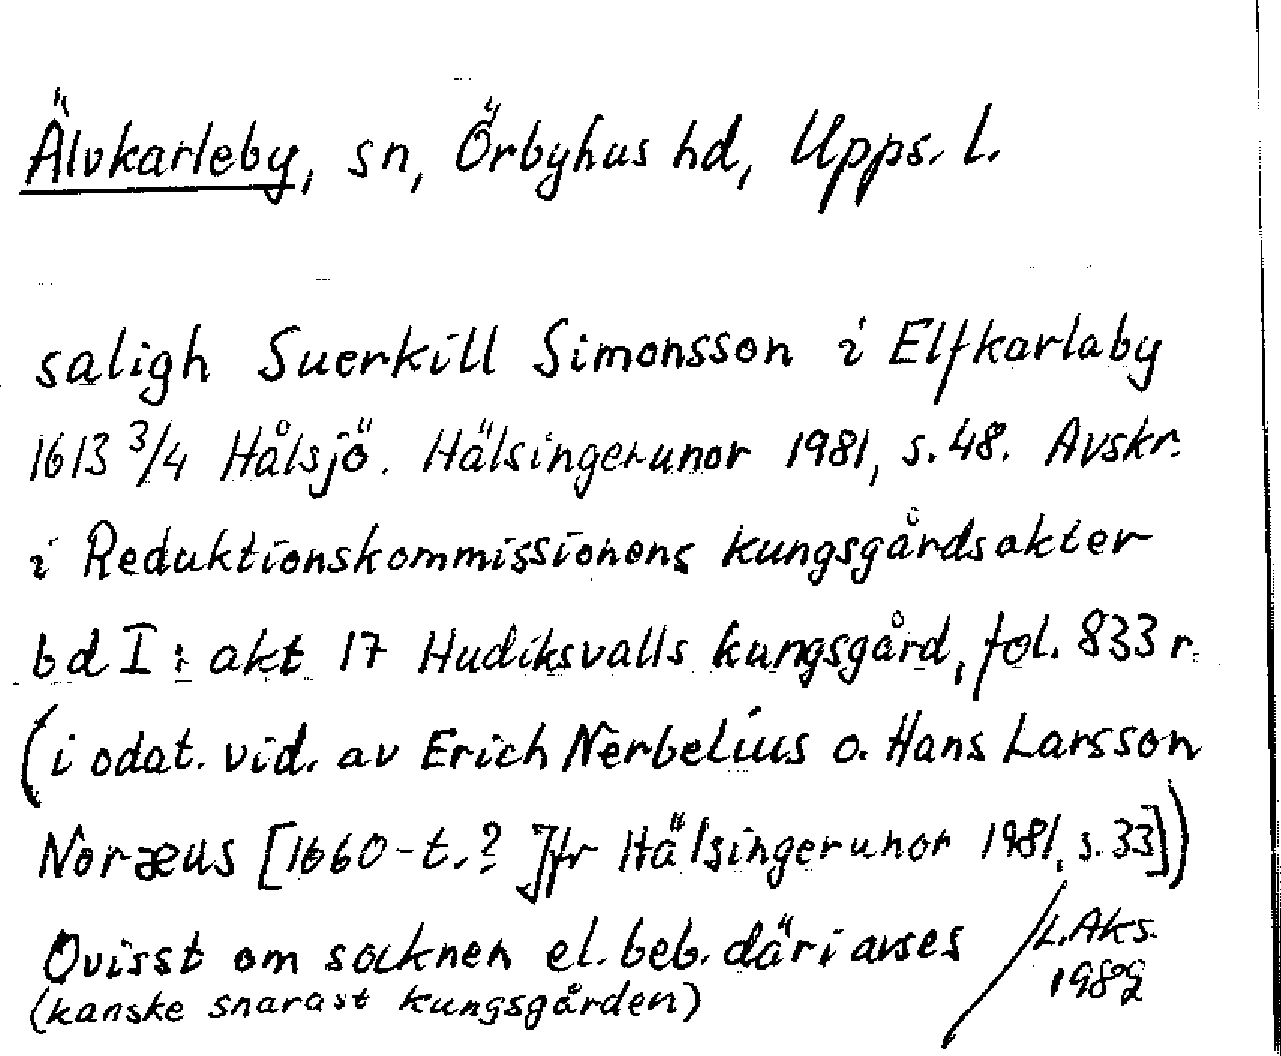 Älvkarleby, sn, Örbyhus hd, Upps. l.
saligh Suerkill Simonsson i Elfkarlaby
1613 3/4 Hålsjö. Hälsingerunor 1981, s. 48. Avskr.
i Reduktionskommissionens kungsgårdsakter
bd I: akt 17 Hudiksvalls kungsgård, fol. 833 r.
(i odat. vid. av Erich Nerbelius o. Hans Larsson
Noræus [1660-t.? Jfr Hälsingerunor 1981, s. 33])
Ovisst om socknen el. beb. däri avses
(kanske snarast kungsgården)
L. Aks.
1982